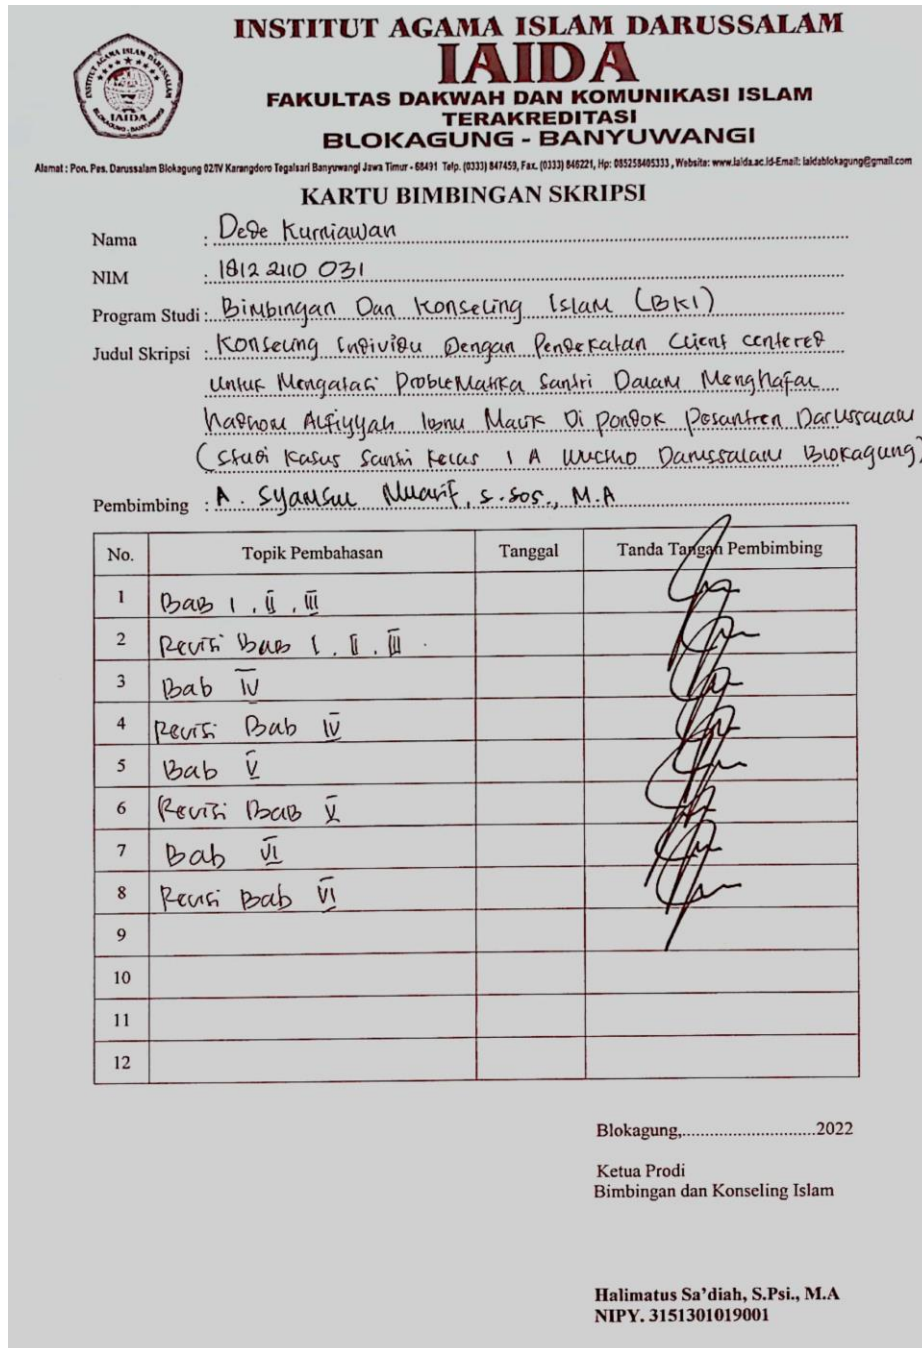 INSTITUT AGAMA ISLAM DARUSSALAM
IAIDA
FAKULTAS DAKWAH DAN KOMUNIKASI ISLAM
TERAKREDITASI
BLOKAGUNG - BANYUWANGI
INSTITUT AGAMA ISLAM DARUSSALAM
IAIDA
BLOKAGUNG - BANYUWANGI
Alamat : Pon. Pes. Darussalam Blokagung 02/IV Karangdoro Tegalsari Banyuwangi Jawa Timur - 68491 Telp. (0333) 847459, Fax. (0333) 846221, Hp: 085258405333 , Website: www.iaida.ac.id-Email: iaidablokagung@gmail.com
KARTU BIMBINGAN SKRIPSI
Nama : Dede Kurniawan
NIM : 1812 2110 031
Program Studi : Bimbingan Dan Konseling Islam (BKI)
Judul Skripsi : Konseling Individu Dengan Pendekatan Client centered
Untuk Mengatasi Problematika Santri Dalam Menghafal
Nadhom Alfiyyah Ibnu Malik Di pondok Pesantren Darussalam
(Studi Kasus Santri Kelas 1 A Wustho Darussalam Blokagung)
Pembimbing : A. Syamsul Muarif, S.Sos., M.A
No. Topik Pembahasan Tanggal Tanda Tangan Pembimbing
1 Bab I, II, III
2 Revisi Bab I, II, III.
3 Bab IV
4 Revisi Bab IV
5 Bab V
6 Revisi Bab V
7 Bab VI
8 Revisi Bab VI
9
10
11
12
Blokagung,............................2022
Ketua Prodi
Bimbingan dan Konseling Islam
Halimatus Sa'diah, S.Psi., M.A
NIPY. 3151301019001